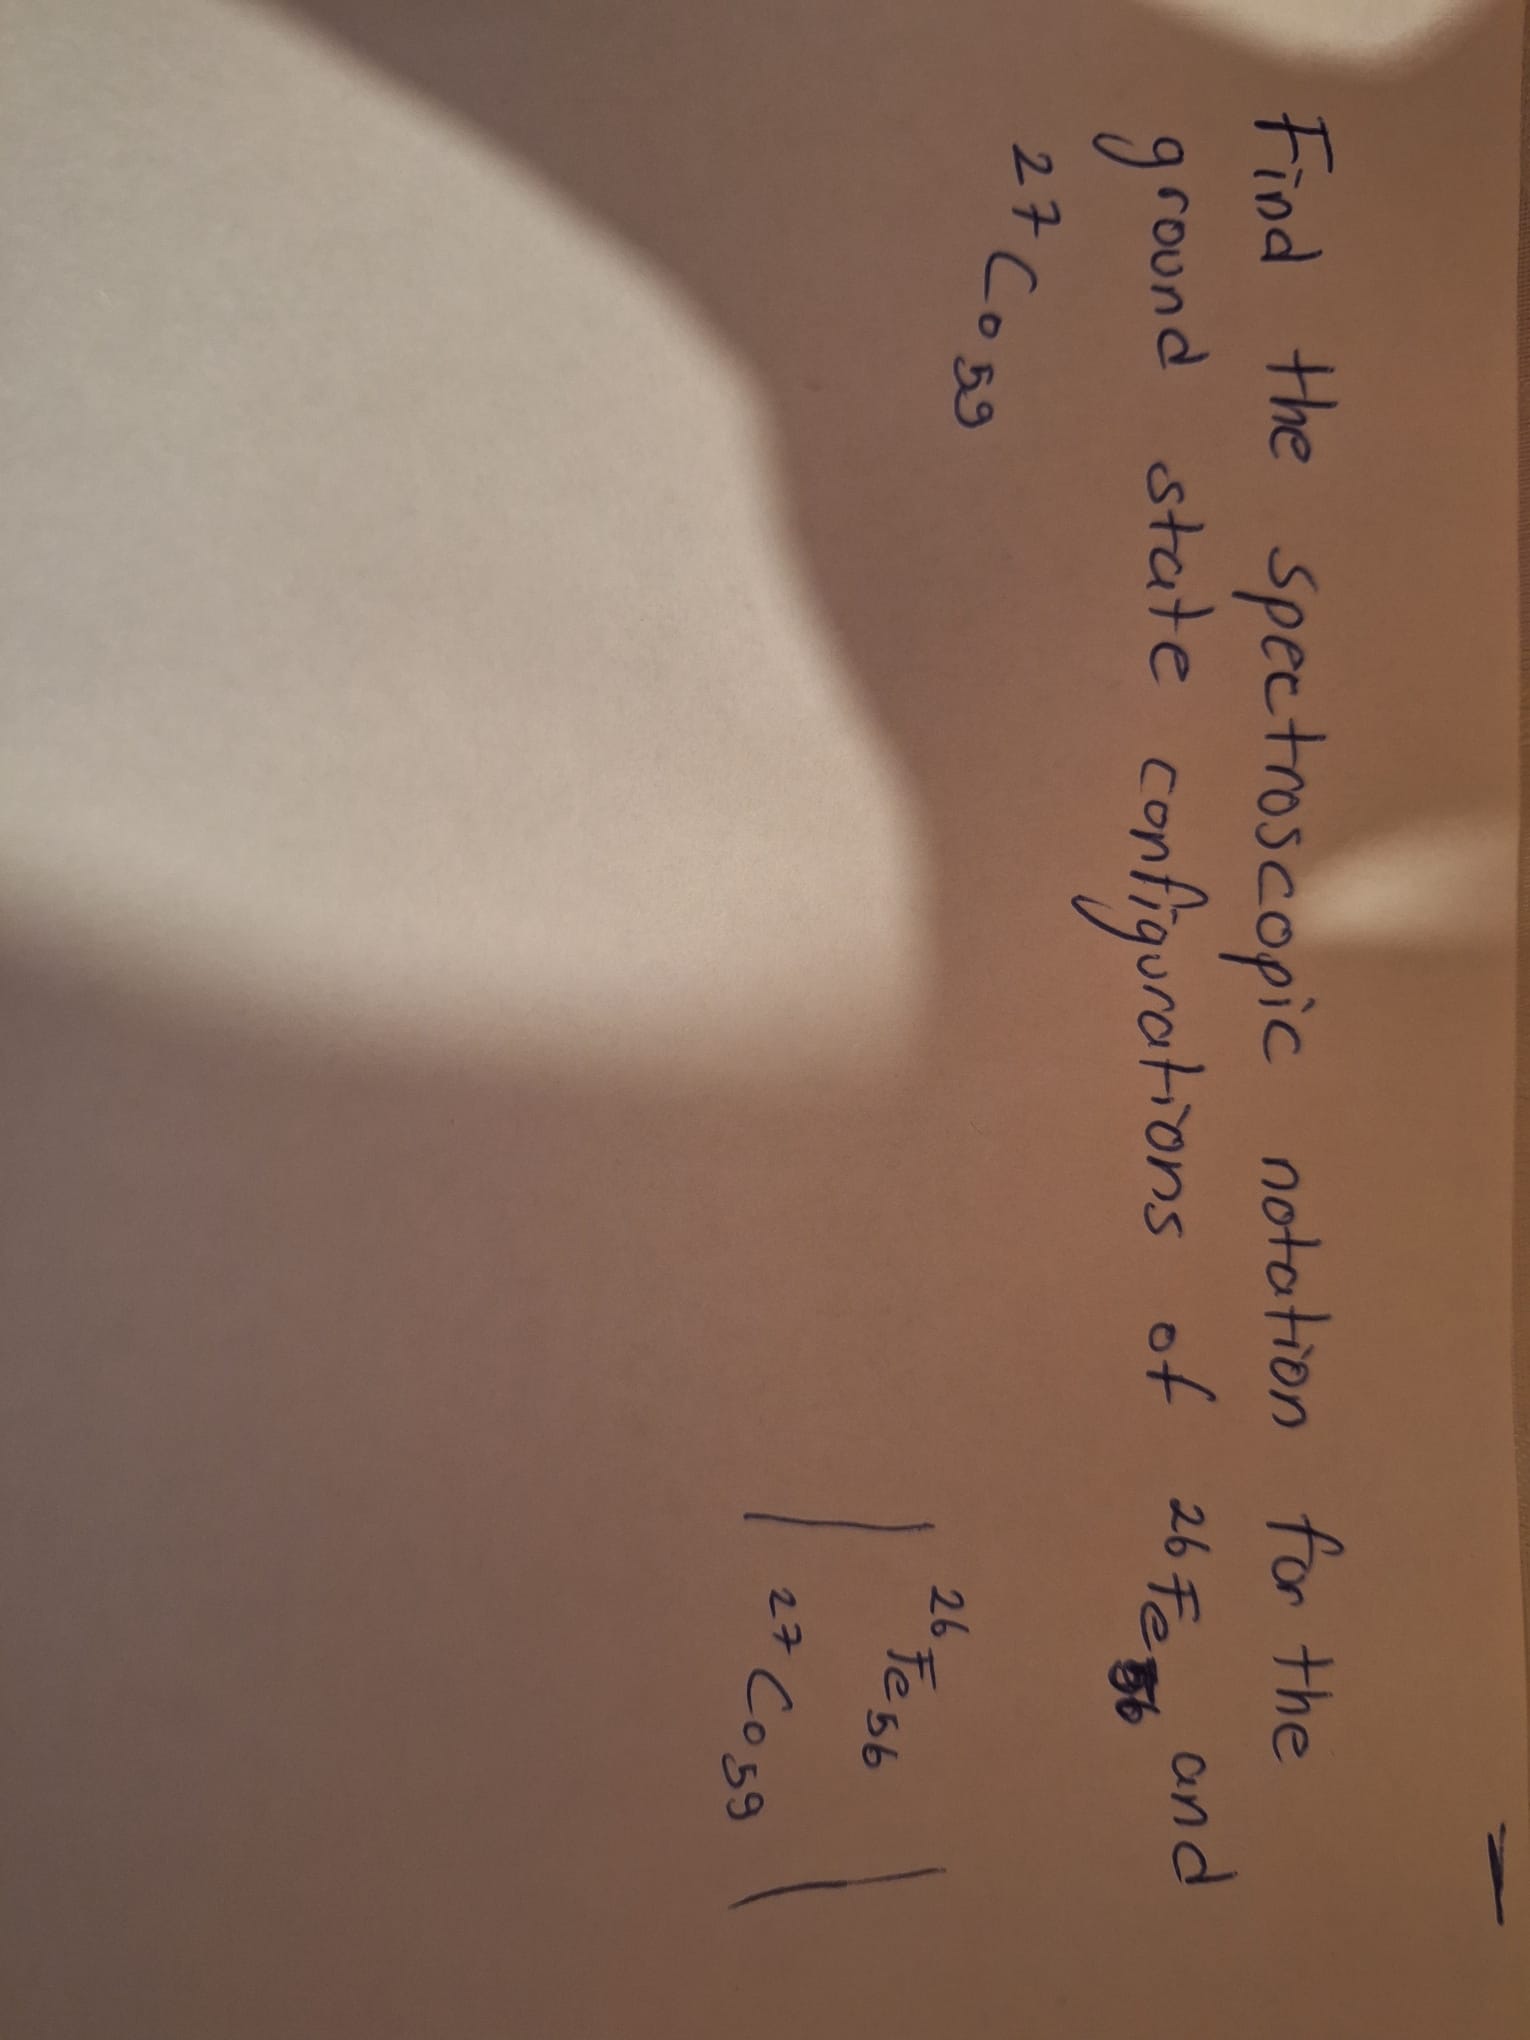 Find the spectroscopic notation for the
ground state configurations of 26Fe56 and
27Co59
26Fe56
27Co59